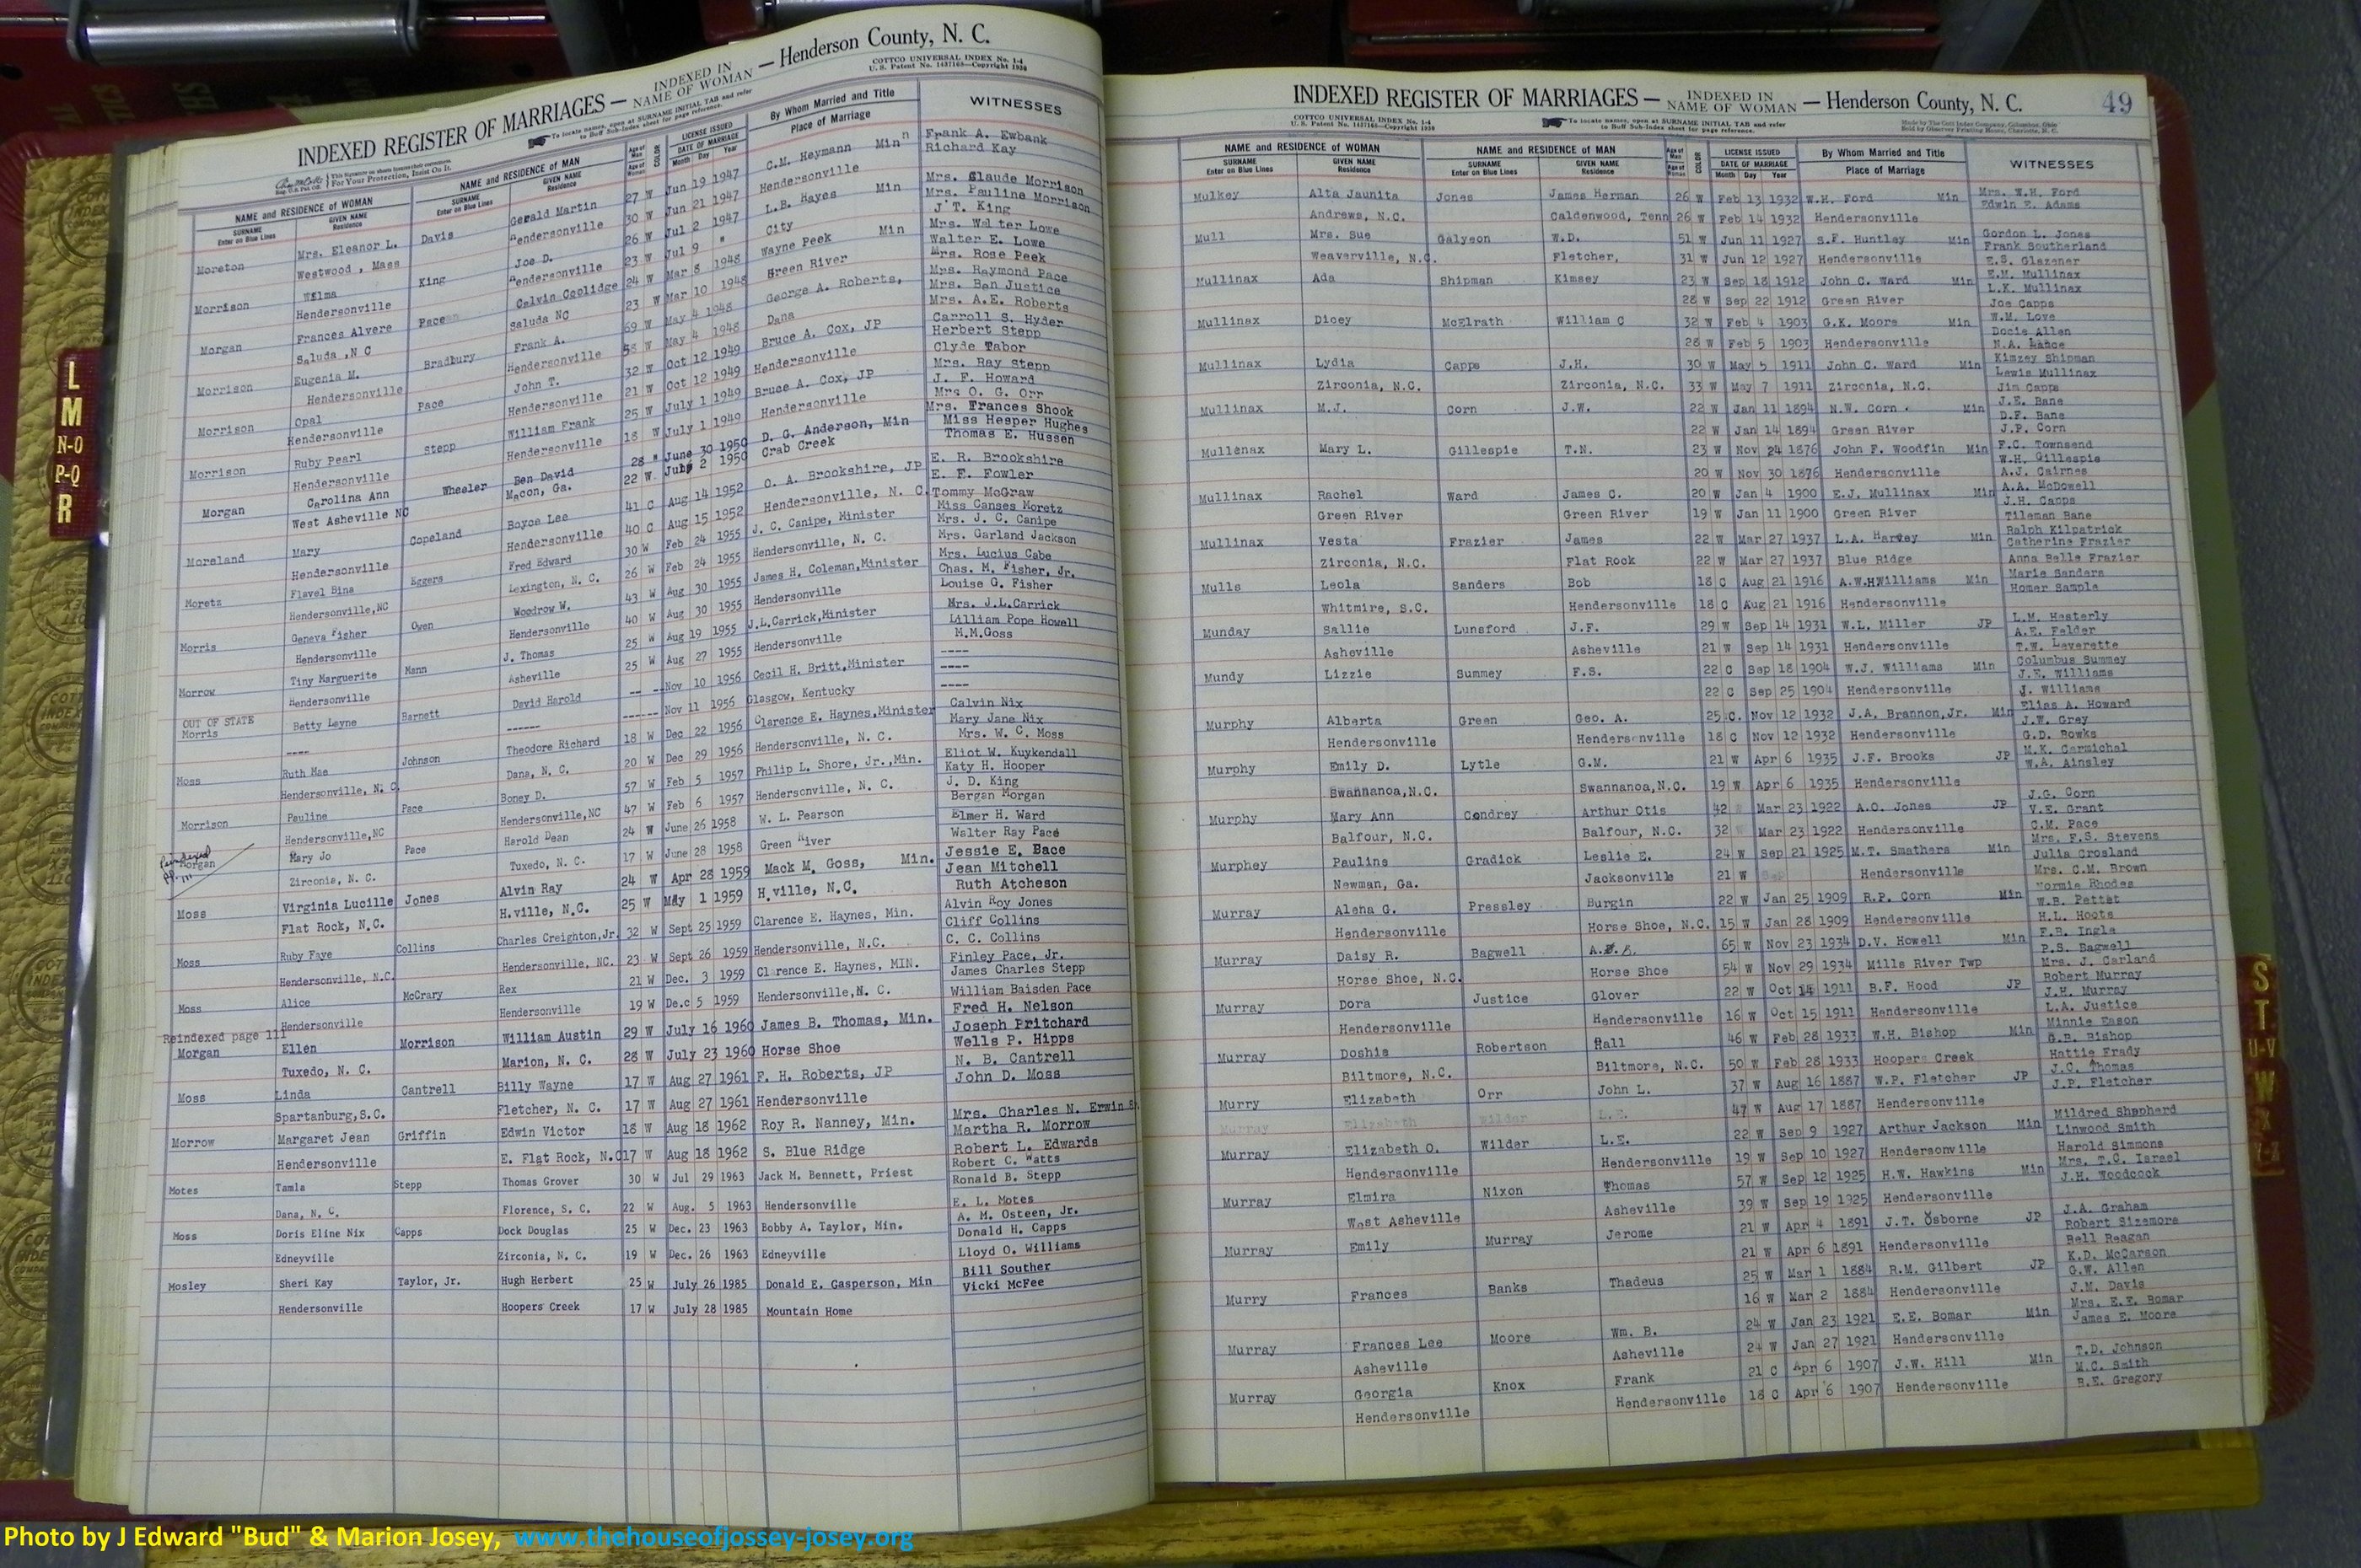 INDEXED REGISTER OF MARRIAGES — INDEXED IN NAME OF WOMAN — Henderson County, N. C.
COTTCO UNIVERSAL INDEX No. 1-4
U. S. Patent No. 1437165—Copyright 1936
To locate names, open at SURNAME INITIAL TAB and refer
to Buff Sub-Index sheet for page reference.
For Your Protection, Insist On It.
NAME and RESIDENCE OF WOMAN NAME and RESIDENCE OF MAN COLOR LICENSE ISSUED By Whom Married and Title WITNESSES
SURNAME GIVEN NAME SURNAME GIVEN NAME DATE OF MARRIAGE Place of Marriage
Enter on Blue Lines Residence Enter on Blue Lines Residence Month Day Year
Moreton Mrs. Eleanor L. Davis Gerald Martin 27 W Jun 19 1947 C.M. Heymann Min Frank A. Ewbank
Westwood , Mass Hendersonville 30 W Jun 21 1947 Hendersonville Richard Kay
Morrison Wilma King Joe D. 26 W Jul 2 1947 L.B. Hayes Min Mrs. Claude Morrison
Mrs. Pauline Morrison
Hendersonville Hendersonville 23 W Jul 9 " City J T. King
Morgan Frances Alvere Pace Calvin Coolidge 24 W Mar 8 1948 Wayne Peek Min Mrs. Walter Lowe
Walter E. Lowe
Saluda ,N C Saluda NC 23 W Mar 10 1948 Green River Mrs. Rose Peek
Morrison Eugenia M. Bradbury Frank A. 69 W May 4 1948 George A. Roberts, Mrs. Raymond Pace
Mrs. Ban Justice
Hendersonville Hendersonville 58 W May 4 1948 Dana Mrs. A.E. Roberts
Morrison Opal Pace John T. 32 W Oct 12 1949 Bruce A. Cox, JP Carroll S. Hyder
Herbert Stepp
Hendersonville Hendersonville 21 W Oct 12 1949 Hendersonville Clyde Tabor
Morrison Ruby Pearl Stepp William Frank 25 W July 1 1949 Bruce A. Cox, JP Mrs. Ray Stepp
J. F. Howard
Hendersonville Hendersonville 18 W July 1 1949 Hendersonville Mrs O. G. Orr
Morgan Carolina Ann Wheeler Ben David 28 " June 30 1950 D. G. Anderson, Min Mrs. Frances Shook
Miss Hesper Hughes
West Asheville NC Macon, Ga. 22 W July 2 1950 Crab Creek Thomas E. Hussen
Moreland Mary Copeland Boyce Lee 41 C Aug 14 1952 O. A. Brookshire, JP E. R. Brookshire
E. F. Fowler
Hendersonville Hendersonville 40 C Aug 15 1952 Hendersonville, N. C. Tommy McGraw
Moretz Flavel Bina Eggers Fred Edward 30 W Feb 24 1955 J. C. Canipe, Minister Miss Canses Moretz
Mrs. J. C. Canipe
Hendersonville,NC Lexington, N. C. 26 W Feb 24 1955 Hendersonville, N. C. Mrs. Garland Jackson
Morris Geneva Fisher Owen Woodrow W. 43 W Aug 30 1955 James H. Coleman,Minister Mrs. Lucius Cabe
Chas. M. Fisher, Jr.
Hendersonville Hendersonville 40 W Aug 30 1955 Hendersonville Louise G. Fisher
Morrow Tiny Marguerite Mann J. Thomas 25 W Aug 19 1955 J.L.Carrick,Minister Mrs. J.L.Carrick
Lilliam Pope Howell
Hendersonville Asheville 25 W Aug 27 1955 Hendersonville M.M.Goss
OUT OF STATE
Morris Betty Layne Barnett David Harold -- -- Nov 10 1956 Cecil H. Britt,Minister ----
---- ------ ------ Nov 11 1956 Glasgow, Kentucky ----
Moss Ruth Mae Johnson Theodore Richard 18 W Dec 22 1956 Clarence E. Haynes,Minister Calvin Nix
Mary Jane Nix
Hendersonville, N. C. Dana, N. C. 20 W Dec 29 1956 Hendersonville, N. C. Mrs. W. C. Moss
Morrison Pauline Pace Boney D. 57 W Feb 5 1957 Philip L. Shore, Jr.,Min. Eliot W. Kuykendall
Katy H. Hooper
Hendersonville,NC Hendersonville,NC 47 W Feb 6 1957 Hendersonville, N. C. J. D. King
Reindexed
Morgan Mary Jo Pace Harold Dean 24 W June 26 1958 W. L. Pearson Bergan Morgan
P. 111
Elmer H. Ward
Zirconia, N. C. Tuxedo, N. C. 17 W June 28 1958 Green River Walter Ray Pace
Moss Virginia Lucille Jones Alvin Ray 24 W Apr 28 1959 Mack M. Goss, Min. Jessie E. Bace
Jean Mitchell
Flat Rock, N.C. H.ville, N.C. 25 W May 1 1959 H.ville, N.C. Ruth Atcheson
Moss Ruby Faye Collins Charles Creighton,Jr. 32 W Sept 25 1959 Clarence E. Haynes, Min. Alvin Roy Jones
Cliff Collins
Hendersonville, N.C. Hendersonville, NC. 23 W Sept 26 1959 Hendersonville, N.C. C. C. Collins
Moss Alice McCrary Rex 21 W Dec. 3 1959 Clarence E. Haynes, MIN. Finley Pace, Jr.
James Charles Stepp
Hendersonville Hendersonville 19 W De.c 5 1959 Hendersonville,N. C. William Baisden Pace
Reindexed page 111
Morgan Ellen Morrison William Austin 29 W July 16 1960 James B. Thomas, Min. Fred H. Nelson
Joseph Pritchard
Tuxedo, N. C. Marion, N. C. 28 W July 23 1960 Horse Shoe Wells P. Hipps
Moss Linda Cantrell Billy Wayne 17 W Aug 27 1961 F. H. Roberts, JP N. B. Cantrell
Spartanburg,S.C. Fletcher, N. C. 17 W Aug 27 1961 Hendersonville John D. Moss
Morrow Margaret Jean Griffin Edwin Victor 18 W Aug 18 1962 Roy R. Nanney, Min. Mrs. Charles N. Erwin Sr.
Martha R. Morrow
Hendersonville E. Flat Rock, N.C 17 W Aug 18 1962 S. Blue Ridge Robert L. Edwards
Motes Tamla Stepp Thomas Grover 30 W Jul 29 1963 Jack M. Bennett, Priest Robert C. Watts
Ronald B. Stepp
Dana, N. C. Florence, S. C. 22 W Aug. 5 1963 Hendersonville E. L. Motes
Moss Doris Eline Nix Capps Dock Douglas 25 W Dec. 23 1963 Bobby A. Taylor, Min. A. M. Osteen, Jr.
Donald H. Capps
Edneyville Zirconia, N. C. 19 W Dec. 26 1963 Edneyville Lloyd O. Williams
Mosley Sheri Kay Taylor, Jr. Hugh Herbert 25 W July 26 1985 Donald E. Gasperson, Min Bill Souther
Vicki McFee
Hendersonville Hoopers Creek 17 W July 28 1985 Mountain Home
INDEXED REGISTER OF MARRIAGES — INDEXED IN NAME OF WOMAN — Henderson County, N. C. 49
COTTCO UNIVERSAL INDEX No. 1-4
U. S. Patent No. 1437165—Copyright 1936
To locate names, open at SURNAME INITIAL TAB and refer
to Buff Sub-Index sheet for page reference.
Made by The Cott Index Company, Columbus, Ohio
Sold by Observer Printing House, Charlotte, N. C.
NAME and RESIDENCE OF WOMAN NAME and RESIDENCE OF MAN Age of Man COLOR LICENSE ISSUED By Whom Married and Title WITNESSES
SURNAME GIVEN NAME SURNAME GIVEN NAME Age of Woman DATE OF MARRIAGE Place of Marriage
Enter on Blue Lines Residence Enter on Blue Lines Residence Month Day Year
Mulkey Alta Jaunita Jones James Herman 26 W Feb 13 1932 W.H. Ford Min Mrs. W.H. Ford
Edwin E. Adams
Andrews, N.C. Caldenwood, Tenn 26 W Feb 14 1932 Hendersonville
Mull Mrs. Sue Galyeon W.D. 51 W Jun 11 1927 S.F. Huntley Min Gordon L. Jones
Frank Southerland
Weaverville, N.C. Fletcher, 31 W Jun 12 1927 Hendersonville E.S. Glazener
Mullinax Ada Shipman Kimsey 23 W Sep 18 1912 John C. Ward Min E.M. Mullinax
L.K. Mullinax
28 W Sep 22 1912 Green River Joe Capps
Mullinax Dicey McElrath William C 32 W Feb 4 1903 G.K. Moore Min W.M. Love
Docie Allen
28 W Feb 5 1903 Hendersonville N.A. Lance
Mullinax Lydia Capps J.H. 30 W May 5 1911 John C. Ward Min Kimzey Shipman
Lewis Mullinax
Zirconia, N.C. Zirconia, N.C. 33 W May 7 1911 Zirconia, N.C. Jim Capps
Mullinax M.J. Corn J.W. 22 W Jan 11 1894 N.W. Corn Min J.E. Bane
D.F. Bane
22 W Jan 14 1894 Green River J.P. Corn
Mullenax Mary L. Gillespie T.N. 23 W Nov 24 1876 John F. Woodfin Min F.C. Townsend
W.H. Gillespie
20 W Nov 30 1876 Hendersonville A.J. Cairnes
Mullinax Rachel Ward James C. 20 W Jan 4 1900 E.J. Mullinax Min A.A. McDowell
J.H. Capps
Green River Green River 19 W Jan 11 1900 Green River Tileman Bane
Mullinax Vesta Frazier James 22 W Mar 27 1937 L.A. Harvey Min Ralph Kilpatrick
Catherine Frazier
Zirconia, N.C. Flat Rock 22 W Mar 27 1937 Blue Ridge Anna Belle Frazier
Mulls Leola Sanders Bob 18 C Aug 21 1916 A.W.HWilliams Min Marie Sanders
Homer Sample
Whitmire, S.C. Hendersonville 18 C Aug 21 1916 Hendersonville
Munday Sallie Lunsford J.F. 29 W Sep 14 1931 W.L. Miller JP L.M. Hesterly
A.E. Felder
Asheville Asheville 21 W Sep 14 1931 Hendersonville T.W. Leverette
Mundy Lizzie Summey F.S. 22 C Sep 18 1904 W.J. Williams Min Columbus Summey
J.E. Williams
22 C Sep 25 1904 Hendersonville J. Williams
Murphy Alberta Green Geo. A. 25 C. Nov 12 1932 J.A. Brannon,Jr. Min Elias A. Howard
J.W. Grey
Hendersonville Hendersonville 18 C Nov 12 1932 Hendersonville G.D. Bowks
Murphy Emily D. Lytle G.M. 21 W Apr 6 1935 J.F. Brooks JP M.K. Carmichal
W.A. Ainsley
Swannanoa,N.C. Swannanoa,N.C. 19 W Apr 6 1935 Hendersonville
Murphy Mary Ann Condrey Arthur Otis 42 Mar 23 1922 A.O. Jones JP J.G. Corn
V.E. Grant
Balfour, N.C. Balfour, N.C. 32 Mar 23 1922 Hendersonville C.M. Pace
Murphey Pauline Gradick Leslie E. 24 W Sep 21 1925 M.T. Smathers Min Mrs. F.S. Stevens
Julia Crosland
Newman, Ga. Jacksonville 21 W Sep Hendersonville Mrs. C.M. Brown
Murray Aleha G. Pressley Burgin 22 W Jan 25 1909 R.P. Corn Min Normie Rhodes
W.B. Pettet
Hendersonville Horse Shoe, N.C. 15 W Jan 28 1909 Hendersonville H.L. Hoots
Murray Daisy R. Bagwell 65 W Nov 23 1934 D.V. Howell Min F.B. Ingle
P.S. Bagwell
Horse Shoe, N.C. Horse Shoe 54 W Nov 29 1934 Mills River Twp Mrs. J. Carland
Murray Dora Justice Glover 22 W Oct 14 1911 B.F. Hood JP Robert Murray
J.H. Murray
Hendersonville Hendersonville 16 W Oct 15 1911 Hendersonville L.A. Justice
Murray Doshie Robertson Hall 46 W Feb 28 1933 W.H. Bishop Min Minnie Eason
G.B. Bishop
Biltmore, N.C. Biltmore, N.C. 50 W Feb 28 1933 Hoopers Creek Hattie Frady
Murry Elizabeth Orr John L. 37 W Aug 16 1887 W.P. Fletcher JP J.C. Thomas
J.P. Fletcher
Murray Elizabeth Wilder L.E. 47 W Aug 17 1887 Hendersonville
Murray Elizabeth O. Wilder L.E. 22 W Sep 9 1927 Arthur Jackson Min Mildred Shepherd
Linwood Smith
Hendersonville Hendersonville 19 W Sep 10 1927 Hendersonville Harold Simmons
Murray Elmira Nixon Thomas 57 W Sep 12 1925 H.W. Hawkins Min Mrs. T.C. Israel
J.H. Woodcock
West Asheville Asheville 39 W Sep 19 1925 Hendersonville
Murray Emily Murray Jerome 21 W Apr 4 1891 J.T. Osborne JP J.A. Graham
Robert Sizemore
21 W Apr 6 1891 Hendersonville Bell Reagan
Murry Frances Banks Thadeus 25 W Mar 1 1884 R.M. Gilbert JP K.D. McCarson
G.W. Allen
16 W Mar 2 1884 Hendersonville J.M. Davis
Murray Frances Lee Moore Wm. B. 24 W Jan 23 1921 E.E. Bomar Min Mrs. E.E. Bomar
James E. Moore
Asheville Asheville 24 W Jan 27 1921 Hendersonville
Murray Georgia Knox Frank 21 C Apr 6 1907 J.W. Hill Min T.D. Johnson
M.C. Smith
Hendersonville Hendersonville 18 C Apr 6 1907 Hendersonville B.E. Gregory
L
M
N-O
P-Q
R
S
T
U-V
W
X
Y-Z
Photo by J Edward "Bud" & Marion Josey, www.thehouseofjossey-josey.org